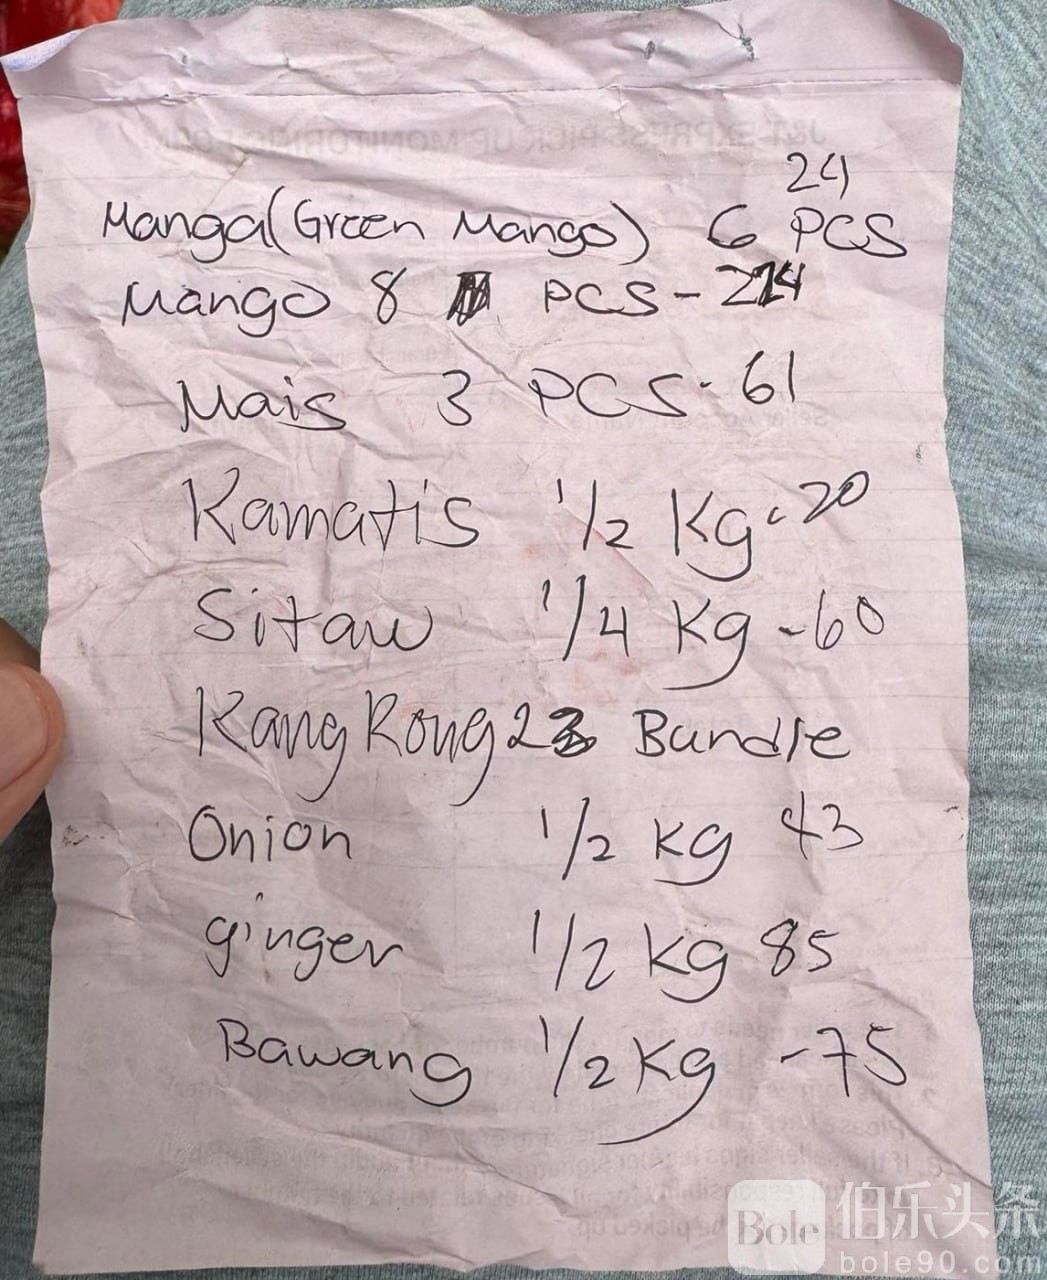 24
Manga (Green Mango) 6 PCS
Mango 8 PCS - 214
Mais 3 PCS - 61
Kamatis 1/2 Kg - 20
Sitaw 1/4 Kg - 60
Kang Kong 2 Bundle
Onion 1/2 kg 43
ginger 1/2 kg 85
Bawang 1/2 Kg - 75
Bole 伯乐头条
bole90.com